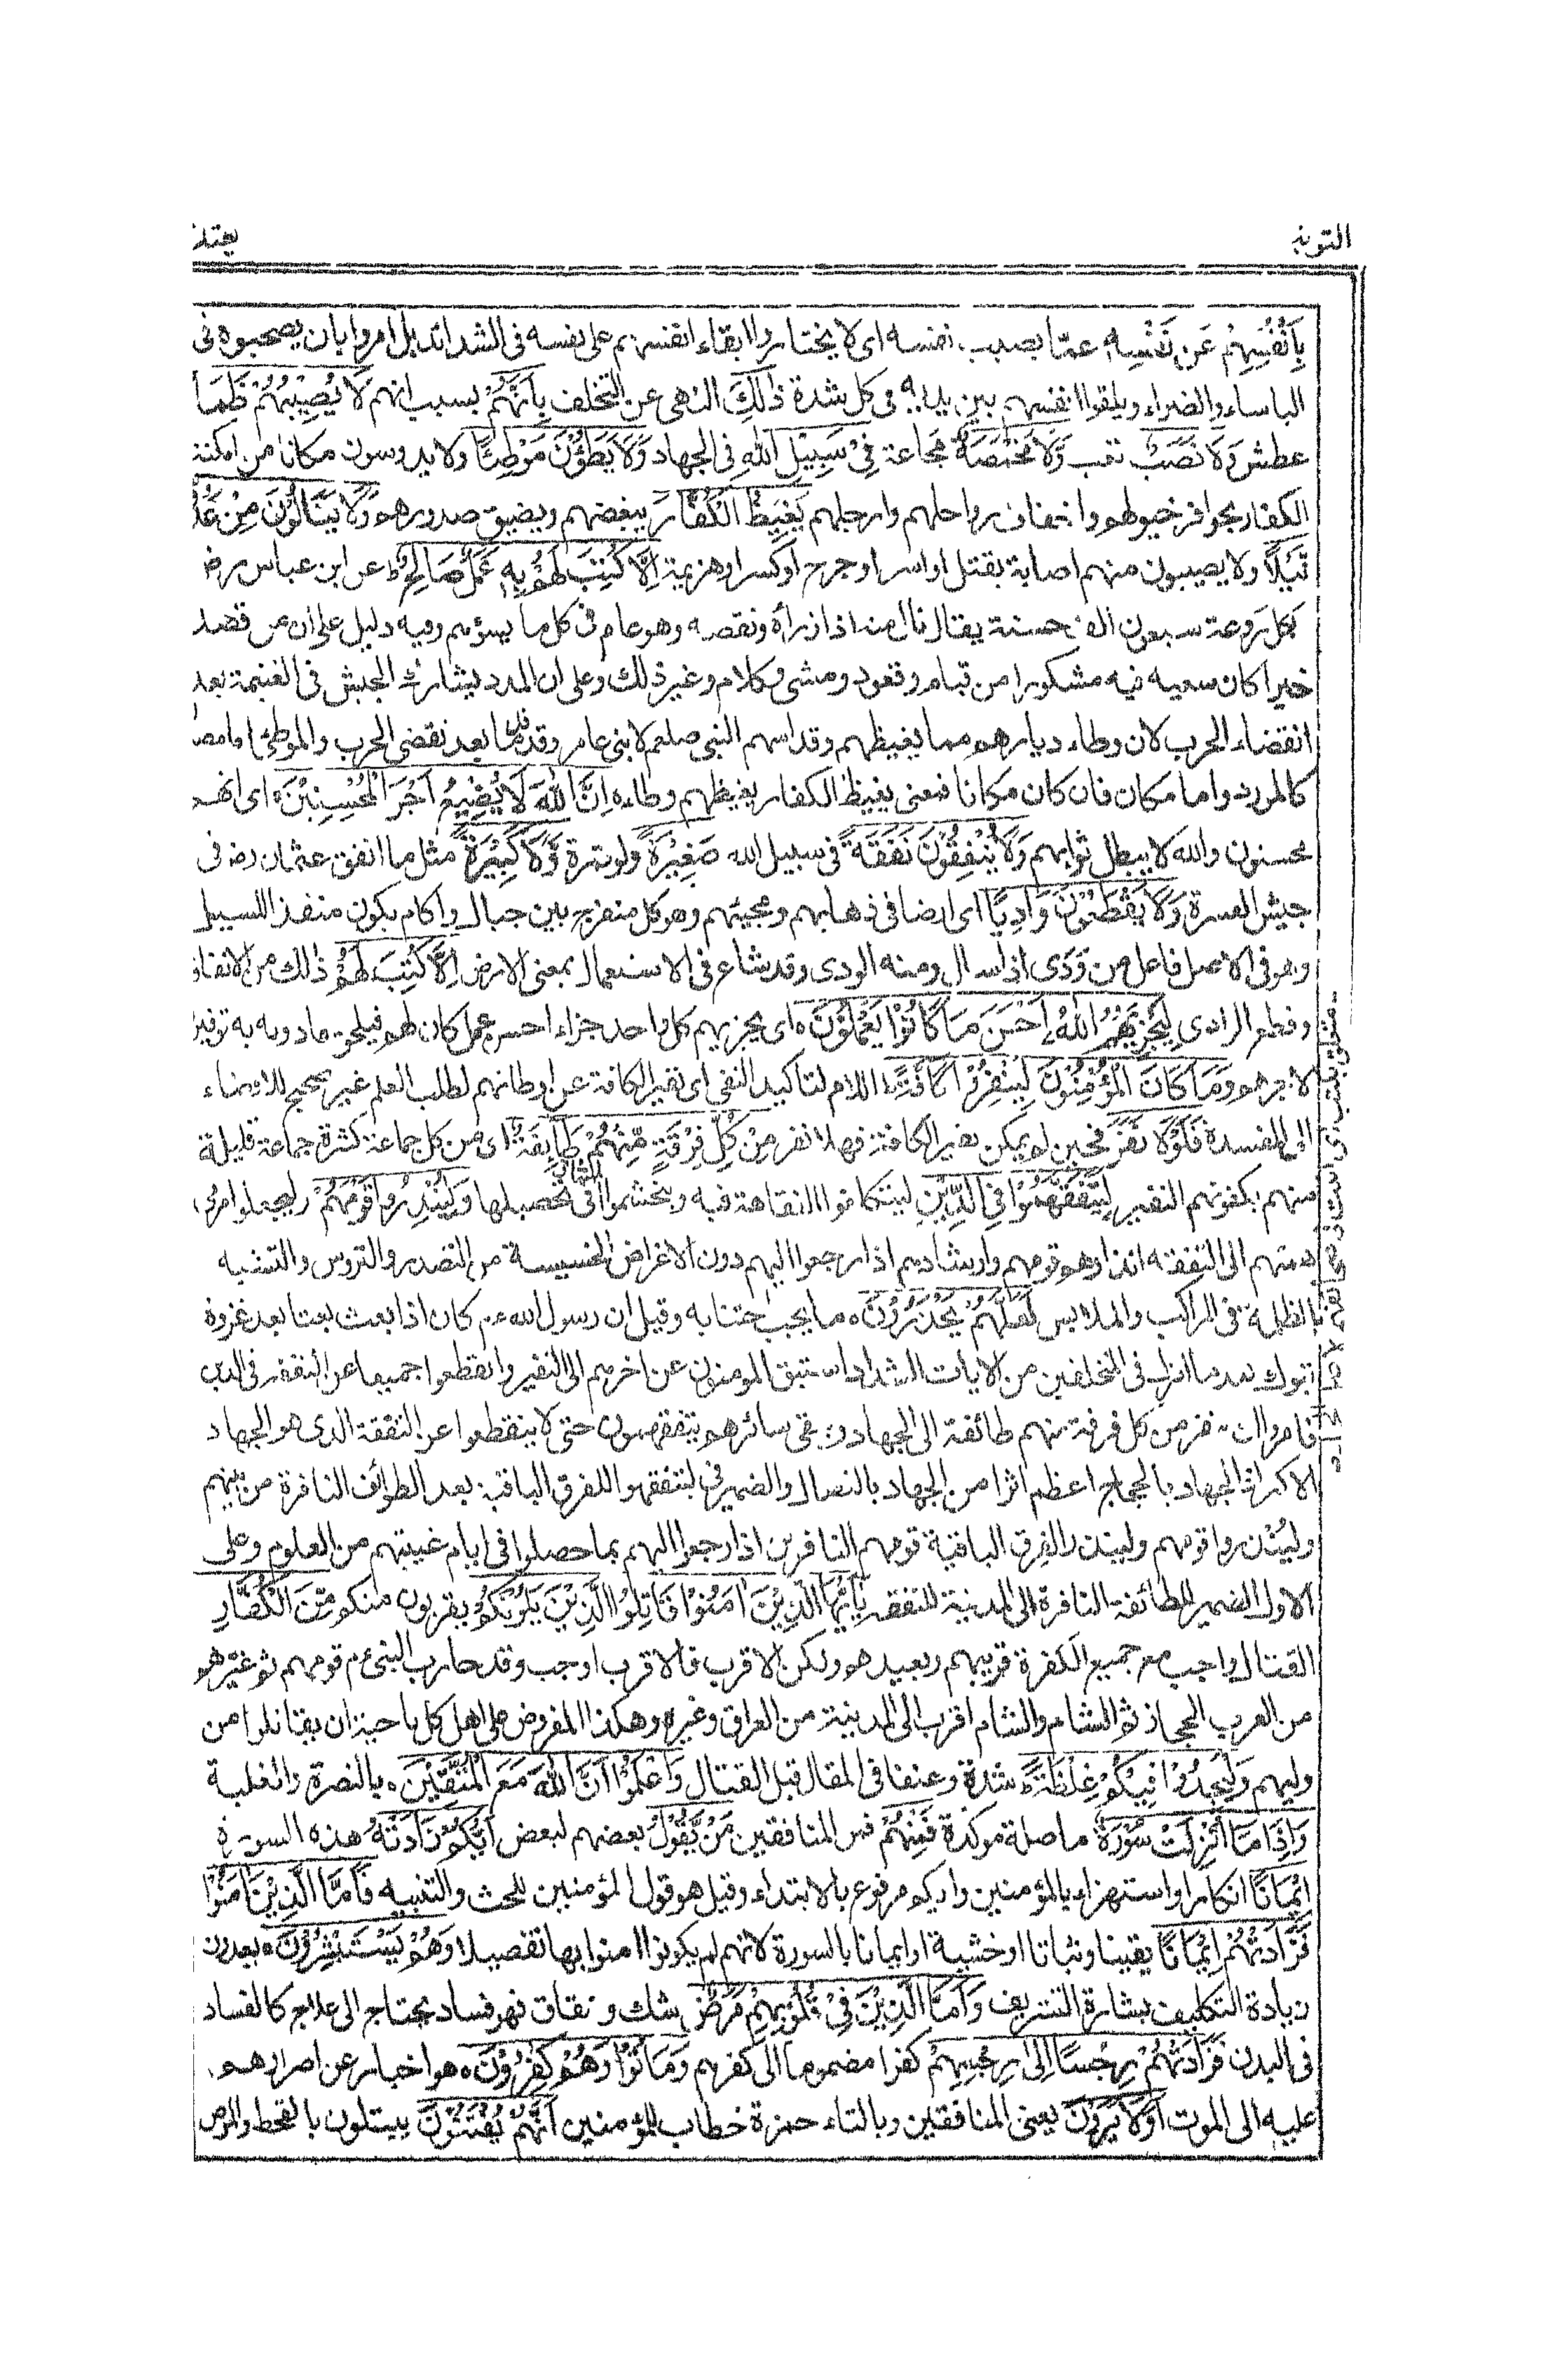 التوبة
يعتذ
بِأَنْفُسِهِمْ عَنْ نَفْسِهٖ عمّا يصيب نفسه اى لا يختاروا ابقاء انفسهم على نفسه فى الشدائد بل امروا بان يصحبوه فى
الباساء والضراء ويلقوا انفسهم بين يديه فى كل شدة ذٰلِكَ النهى عن التخلف بِاَنَّهُمْ بسبب انهم لَا يُصِيْبُهُمْ ظَمَاٌ
عطش وَلَا نَصَبٌ تعب وَّلَا مَخْمَصَةٌ مجاعة فِىْ سَبِيْلِ اللّٰهِ فى الجهاد وَلَا يَطَؤُنَ مَوْطِئًا ولا يدوسون مكانا من امكنة
الكفار بحوافر خيولهم واخفاف رواحلهم وارجلهم يَغِيْظُ الْكُفَّارَ يبغضهم ويضيق صدورهم وَلَا يَنَالُوْنَ مِنْ عَدُ
نَّيْلًا ولا يصيبون منهم اصابة بقتل او اسر او جرح او كسر او هزيمة اِلَّا كُتِبَ لَهُمْ بِهٖ عَمَلٌ صَالِحٌ ط عن ابن عباس رض
بكل روعة سبعون الف حسنة يقال نال منه اذا رزأه ونقصه وهو عام فى كل ما يسوءهم وفيه دليل على ان من قصد
خيرا كان سعيه فيه مشكورا من قيام وقعود ومشى وكلام وغير ذلك وعلى ان المدد يشارك الجيش فى الغنيمة بعد
انقضاء الحرب لان وطاء ديارهم مما يغيظهم وقد اسهم النبى صلعم لابنى عامر وقد قدما بعد تقضى الحرب والموطئ اما مصد
كالمورد واما مكان فان كان مكانا فمعنى يغيظ الكفار يغيظهم وطاءه اِنَّ اللّٰهَ لَا يُضِيْعُ اَجْرَ الْمُحْسِنِيْنَ ٥ اى انهم
محسنون والله لا يبطل ثوابهم وَلَا يُنْفِقُوْنَ نَفَقَةً فى سبيل الله صَغِيْرَةً ولو تمرة وَّلَا كَبِيْرَةً مثل ما انفق عثمان رض فى
جيش العسرة وَلَا يَقْطَعُوْنَ وَادِيًا اى ارضا فى ذهابهم ومجيئهم وهو كل منفرج بين جبال واكام يكون منفذا للسيل
وهو فى الاصل فاعل من وَدَى اذا سال ومنه الودى وقد شاع فى الاستعمال بمعنى الارض اِلَّا كُتِبَ لَهُمْ ذلك من الانفاق
وقطع الوادى لِيَجْزِيَهُمُ اللّٰهُ اَحْسَنَ مَا كَانُوْا يَعْمَلُوْنَ ٥ اى يجزيهم كل واحد جزاء احسن عمل كان لهم فيلحق ما دونه به توفير
لاجرهم وَمَا كَانَ الْمُؤْمِنُوْنَ لِيَنْفِرُوْا كَافَّةً اللام لتاكيد النفى اى نفير الكافة عن اوطانهم لطلب العلم غير صحيح للافضاء
الى المفسدة فَلَوْلَا نَفَرَ فحين لم يمكن نفير الكافة فهلا نفر مِنْ كُلِّ فِرْقَةٍ مِّنْهُمْ طَآئِفَةٌ اى من كل جماعة كثيرة جماعة قليلة
منهم يكفونهم النفير لِيَتَفَقَّهُوْا فِى الدِّيْنِ ليتكلفوا الفقاهة فيه ويتجشموا المشاق فى تحصيلها وَلِيُنْذِرُوْا قَوْمَهُمْ وليجعلوا مرمى
همتهم الى التفقه انذار قومهم وارشادهم اذا رجعوا اليهم دون الاغراض الخسيسة من التصدر والتروس والتشبه
بالظلمة فى المراكب والملابس لَعَلَّهُمْ يَحْذَرُوْنَ ٥ ما يجب اجتنابه وقيل ان رسول الله عم كان اذا بعث بعثا بعد غزوة
تبوك بعد ما انزل فى المتخلفين من الايات الشداد استبق المومنون عن اخرهم الى النفير وانقطعوا جميعا عن التفقه فى الدين
فامروا ان ينفر من كل فرقة منهم طائفة الى الجهاد ويبقى سائرهم يتفقهون حتى لا ينقطعوا عن التفقه الذى هو الجهاد
الاكبر اذ الجهاد بالحجاج اعظم اثرا من الجهاد بالنصال والضمير فى ليتفقهوا للفرق الباقية بعد الطوائف النافرة من بينهم
ولينذروا قومهم ولينذر الفرق الباقية قومهم النافرين اذا رجعوا اليهم بما حصلوا فى ايام غيبتهم من العلوم وعلى
الاول الضمير للطائفة النافرة الى المدينة للتفقه يٰٓاَيُّهَا الَّذِيْنَ اٰمَنُوْا قَاتِلُوا الَّذِيْنَ يَلُوْنَكُمْ يقربون منكم مِّنَ الْكُفَّارِ
القتال واجب مع جميع الكفرة قريبهم وبعيدهم ولكن الاقرب فالاقرب اوجب وقد حارب النبى عم قومهم ثم غيرهم
من العرب الحجاز ثم الشام والشام اقرب الى المدينة من العراق وغيره وهكذا المفروض على اهل كل ناحية ان يقاتلوا من
وليهم وَلْيَجِدُوْا فِيْكُمْ غِلْظَةً ط شدة وعنفا فى المقال قبل القتال وَاعْلَمُوْا اَنَّ اللّٰهَ مَعَ الْمُتَّقِيْنَ ٥ بالنصرة والغلبة
وَاِذَا مَآ اُنْزِلَتْ سُوْرَةٌ ما صلة موكدة فَمِنْهُمْ فمن المنافقين مَنْ يَّقُوْلُ بعضهم لبعض اَيُّكُمْ زَادَتْهُ هٰذِهِ السورة
اِيْمَانًا انكارا واستهزاء بالمؤمنين وايكم مرفوع بالابتداء وقيل هو قول المؤمنين للحث والتنبيه فَاَمَّا الَّذِيْنَ اٰمَنُوْا
فَزَادَتْهُمْ اِيْمَانًا يقينا وثباتا او خشية او ايمانا بالسورة لانهم لم يكونوا امنوا بها تفصيلا وَهُمْ يَسْتَبْشِرُوْنَ ٥ يعدون
زيادة التكليف بشارة التشريف وَاَمَّا الَّذِيْنَ فِىْ قُلُوْبِهِمْ مَّرَضٌ شك ونفاق فهو فساد يحتاج الى علاج كالفساد
فى البدن فَزَادَتْهُمْ رِجْسًا اِلٰى رِجْسِهِمْ كفرا مضموما الى كفرهم وَمَاتُوْا وَهُمْ كٰفِرُوْنَ ٥ هو اخبار عن اصرارهم
عليه الى الموت اَوَلَا يَرَوْنَ يعنى المنافقين وبالتاء حمزة خطاب للمؤمنين اَنَّهُمْ يُفْتَنُوْنَ يبتلون بالقحط والمرض